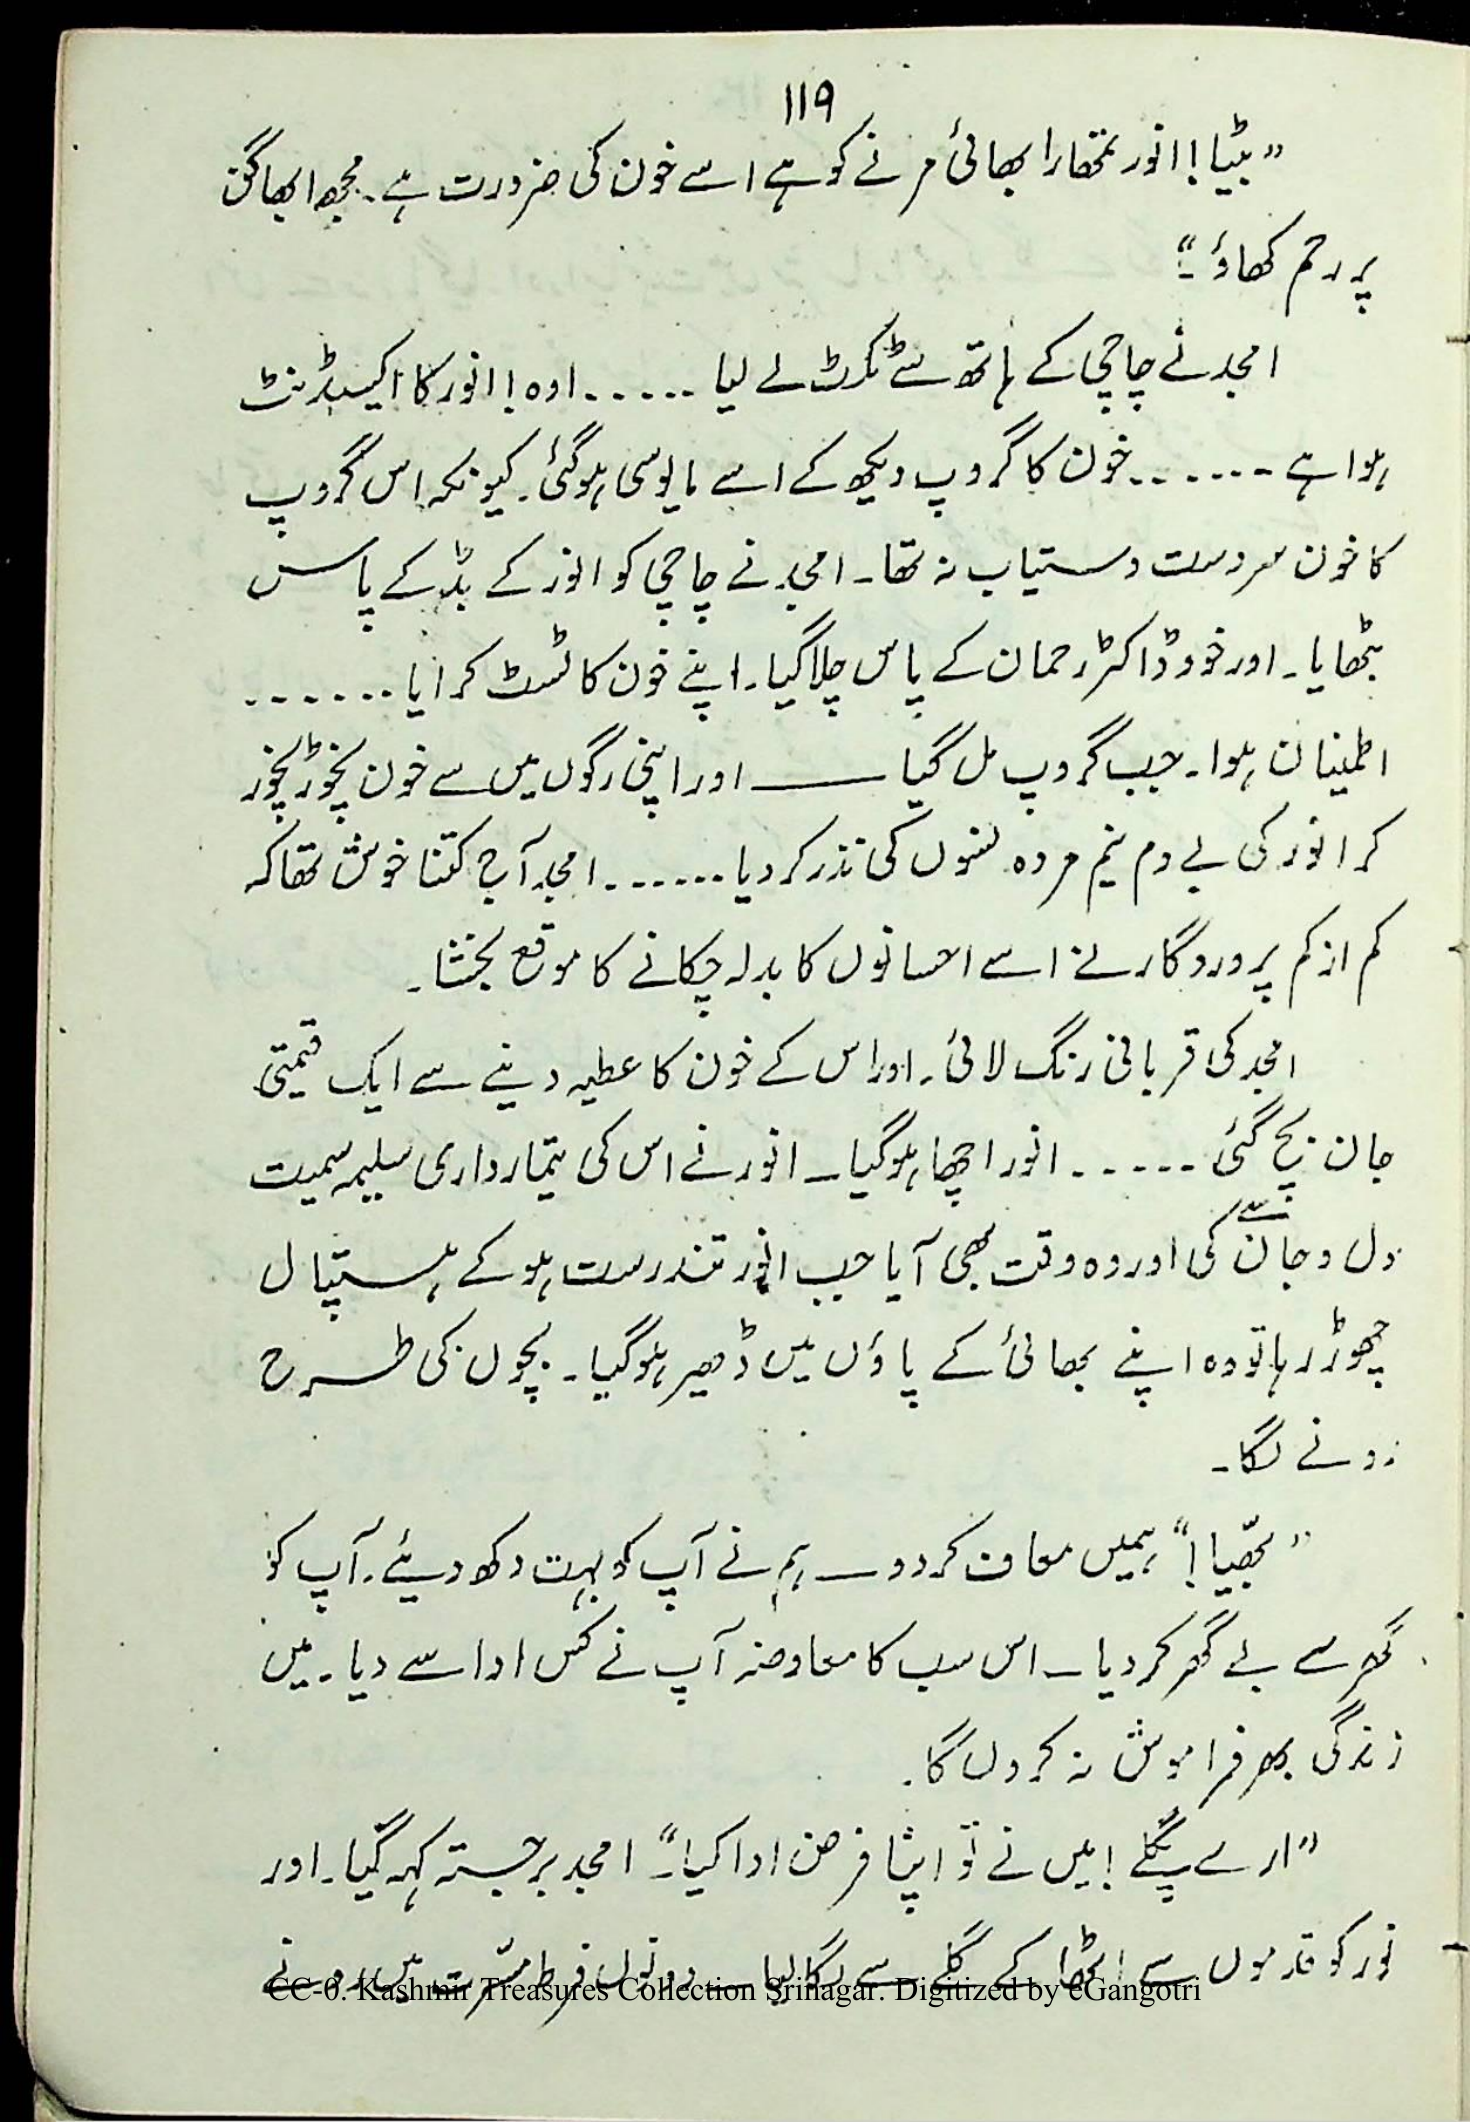 ۱۱۹
”بٹیا! انور تمھارا بھائی مرنے کو ہے اسے خون کی ضرورت ہے۔ مجھ ابھاگن
پر رحم کھاؤ۔“
امجد نے چاچی کے ہاتھ سے ٹکٹ لے لیا ۔۔۔۔۔۔ اوہ! انور کا اکیسڈنٹ
ہوا ہے ۔۔۔۔۔۔ خون کا گروپ دیکھ کے اسے مایوسی ہوگئی۔ کیونکہ اس گروپ
کا خون سردست دستیاب نہ تھا۔ امجد نے چاچی کو انور کے بڈ کے پاس
بٹھایا۔ اور خود ڈاکٹر رحمان کے پاس چلا گیا۔ اپنے خون کا ٹسٹ کرایا ۔۔۔۔۔۔
اطمینان ہوا۔ جب گروپ مل گیا ــــــ اور اپنی رگوں میں سے خون نچوڑ نچوڑ
کر انور کی بے دم نیم مردہ نسوں کی نذر کر دیا ۔۔۔۔۔۔ امجد آج کتنا خوش تھا کہ
کم از کم پروردگار نے اسے احسانوں کا بدلہ چکانے کا موقع بخشا۔
امجد کی قربانی رنگ لائی۔ اور اس کے خون کا عطیہ دینے سے ایک قیمتی
جان بچ گئی ۔۔۔۔۔ انور اچھا ہوگیا۔ انور نے اس کی تیمارداری سلیمہ سمیت
دل و جان سے کی اور وہ وقت بھی آیا جب انور تندرست ہو کے ہسپتال
چھوڑ رہا تو وہ اپنے بھائی کے پاؤں میں ڈھیر ہوگیا۔ بچوں کی طرح
رونے لگا۔
”بھّیا!“ ہمیں معاف کردو ــ ہم نے آپ کو بہت دکھ دیئے۔ آپ کو
گھر سے بے گھر کر دیا ــ اس سب کا معاوضہ آپ نے کس ادا سے دیا۔ میں
زندگی بھر فراموش نہ کروں گا۔
”ارے پگلے! میں نے تو اپنا فرض ادا کیا۔“ امجد برجستہ کہہ گیا۔ اور
نور کو قدموں سے اٹھا کے گلے سے لگا لیا ــ دونوں فرط مسّرت میں رونے
CC-0. Kashmir Treasures Collection Srinagar. Digitized by eGangotri